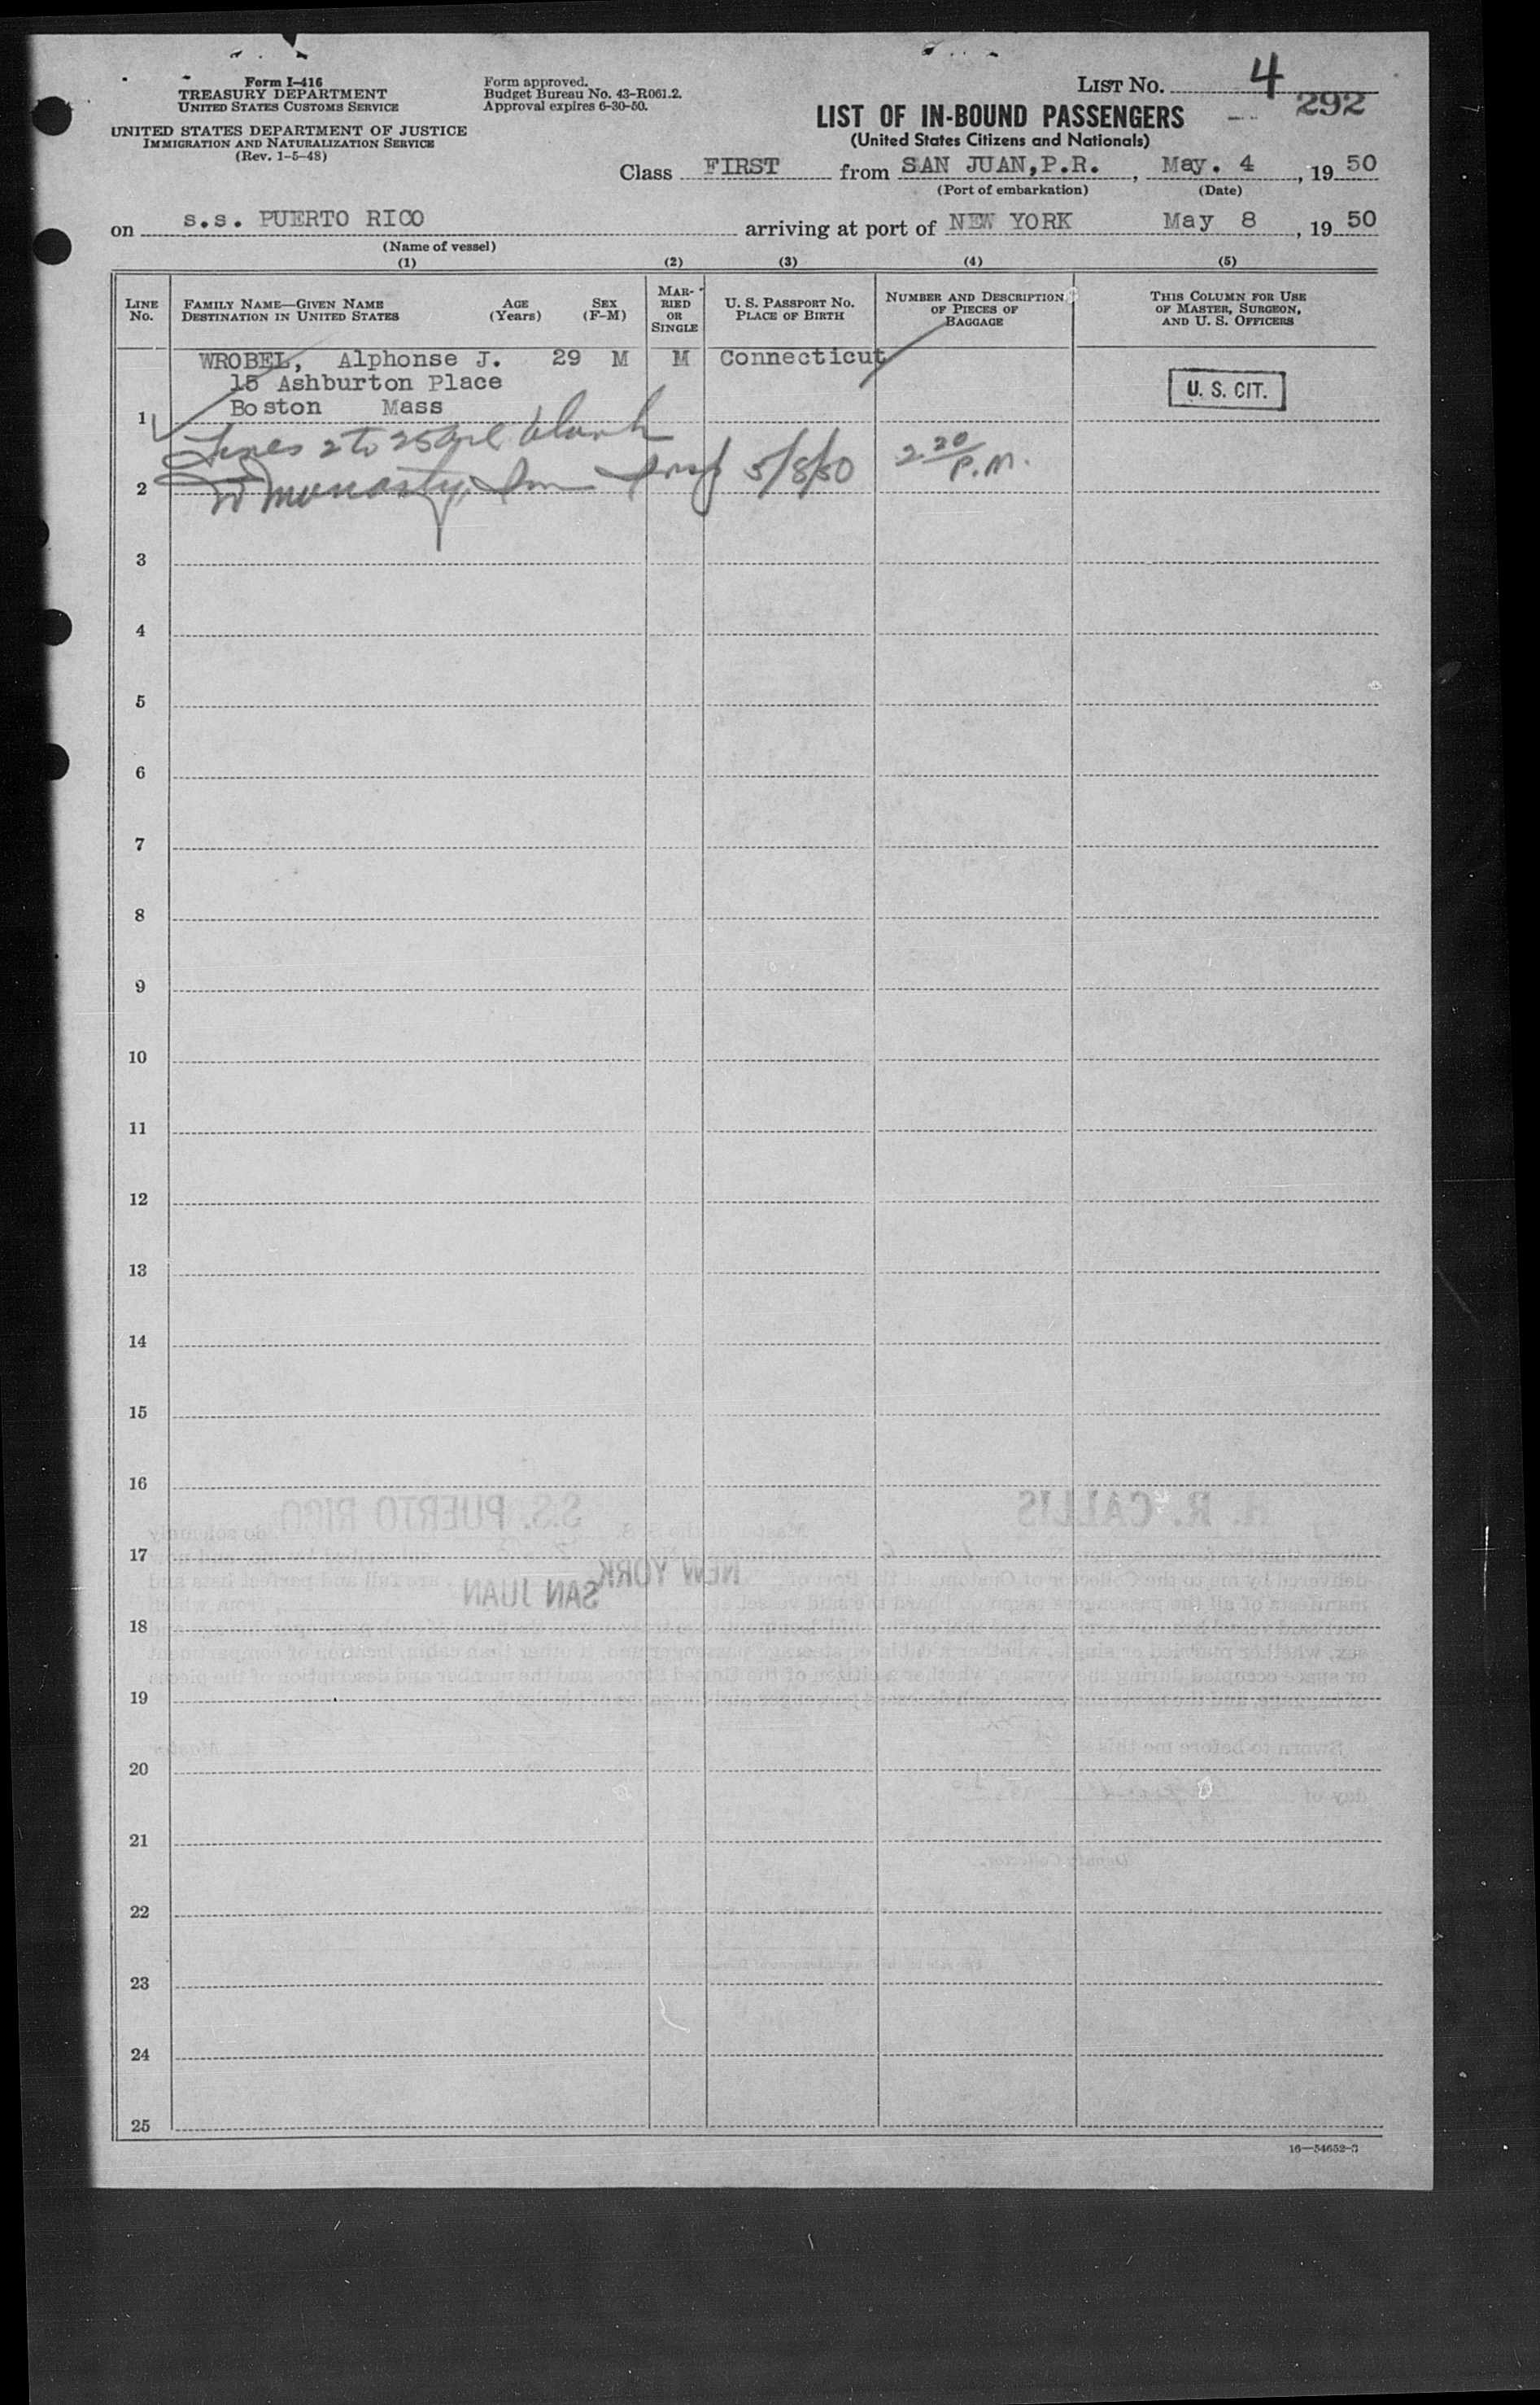 Form I-416
TREASURY DEPARTMENT
UNITED STATES CUSTOMS SERVICE
UNITED STATES DEPARTMENT OF JUSTICE
IMMIGRATION AND NATURALIZATION SERVICE
(Rev. 1-5-48)
Form approved.
Budget Bureau No. 43-R061.2.
Approval expires 6-30-50.
LIST NO. 4
292
LIST OF IN-BOUND PASSENGERS
(United States Citizens and Nationals)
Class FIRST from SAN JUAN, P.R. , May. 4 , 19 50
(Port of embarkation) (Date)
on s.s. PUERTO RICO arriving at port of NEW YORK May 8 , 19 50
(Name of vessel)
(1) (2) (3) (4) (5)
LINE NO.
FAMILY NAME—GIVEN NAME
DESTINATION IN UNITED STATES
AGE (Years)
SEX (F-M)
MAR-RIED OR SINGLE
U. S. PASSPORT NO.
PLACE OF BIRTH
NUMBER AND DESCRIPTION OF PIECES OF BAGGAGE
THIS COLUMN FOR USE OF MASTER, SURGEON, AND U. S. OFFICERS
WROBEL, Alphonse J. 29 M M Connecticut
15 Ashburton Place
Boston Mass
U. S. CIT.
1
Lines 2 to 25 are blank
5/8/50 2 20/P.M.
2
3
4
5
6
7
8
9
10
11
12
13
14
15
16
H. R. CALLIS
S.S. PUERTO RICO
17
NEW YORK
SAN JUAN
18
19
20
21
22
23
24
25